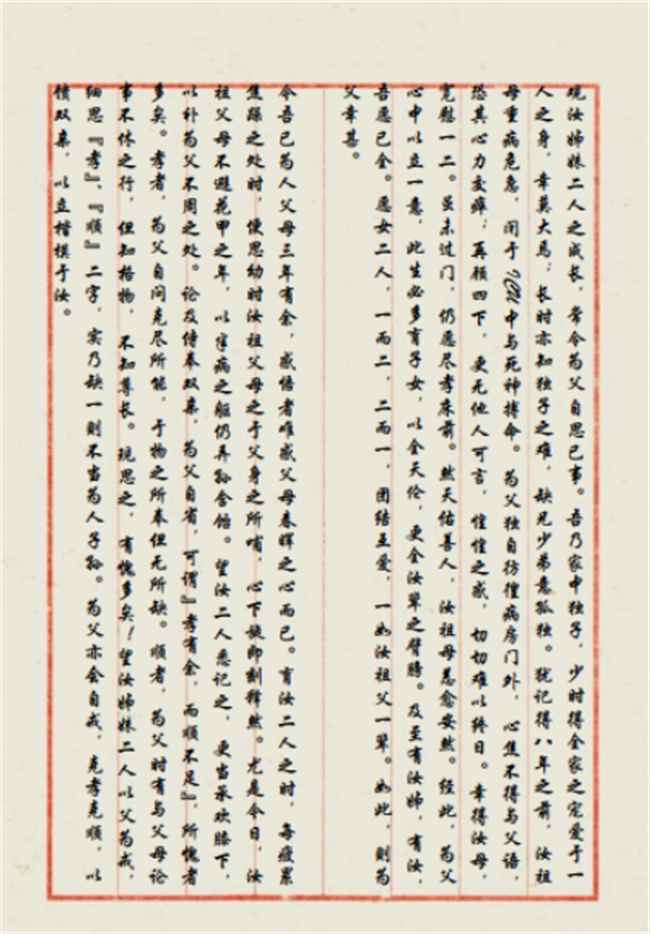 观汝姊妹二人之成长，常令为父自思己事。吾乃家中独子，少时得全家之宠爱于一
人之身，幸莫大焉；长时亦知独子之难，缺兄少弟意孤独。犹记得八年之前，汝祖
母重病危急，闭于ICU中与死神搏命。为父独自彷徨病房门外，心焦不得与父语，
恐其心力交瘁；再顾四下，更无他人可言，惶惶之感，切切难以终日。幸得汝母，
宽慰一二。虽未过门，仍愿尽孝床前。然天佑善人，汝祖母恙愈安然。经此，为父
心中以立一意，此生必多育子女，以全天伦，更全汝辈之臂膀。及至有汝姊，有汝，
吾愿已全。愿女二人，一而二，二而一，团结互爱，一如汝祖父一辈。如此，则为
父幸甚。
今吾已为人父母三年有余，感悟者唯感父母春晖之心而已。育汝二人之时，每疲累
焦躁之处时，便思幼时汝祖父母之于父身之所哺，心下旋即割释然。尤是今日，汝
祖父母不避花甲之年，以半病之躯仍弄孙含饴。望汝二人悉记之，更当承欢膝下，
以补为父不周之处。论及侍奉双亲，为父自省，可谓『孝有余，而顺不足』，所愧者
多矣。孝者，为父自问克尽所能，于物之所奉但无所缺。顺者，为父时有与父母论
事不休之行，但知格物，不知尊长。现思之，有愧多矣！望汝姊妹二人以父为戒，
细思『孝』、『顺』二字，实乃缺一则不当为人子孙。为父亦会自戒，克孝克顺，以
馈双亲，以立楷模于汝。